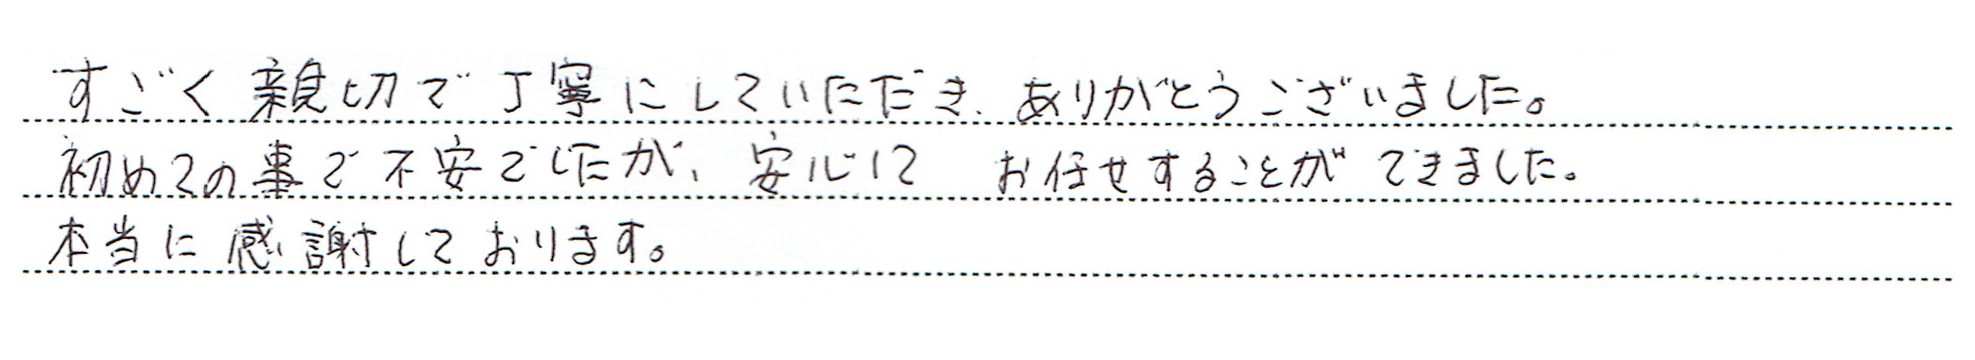 すごく親切で丁寧にしていただき、ありがとうございました。
初めての事で不安でしたが、安心して お任せすることができました。
本当に感謝しております。